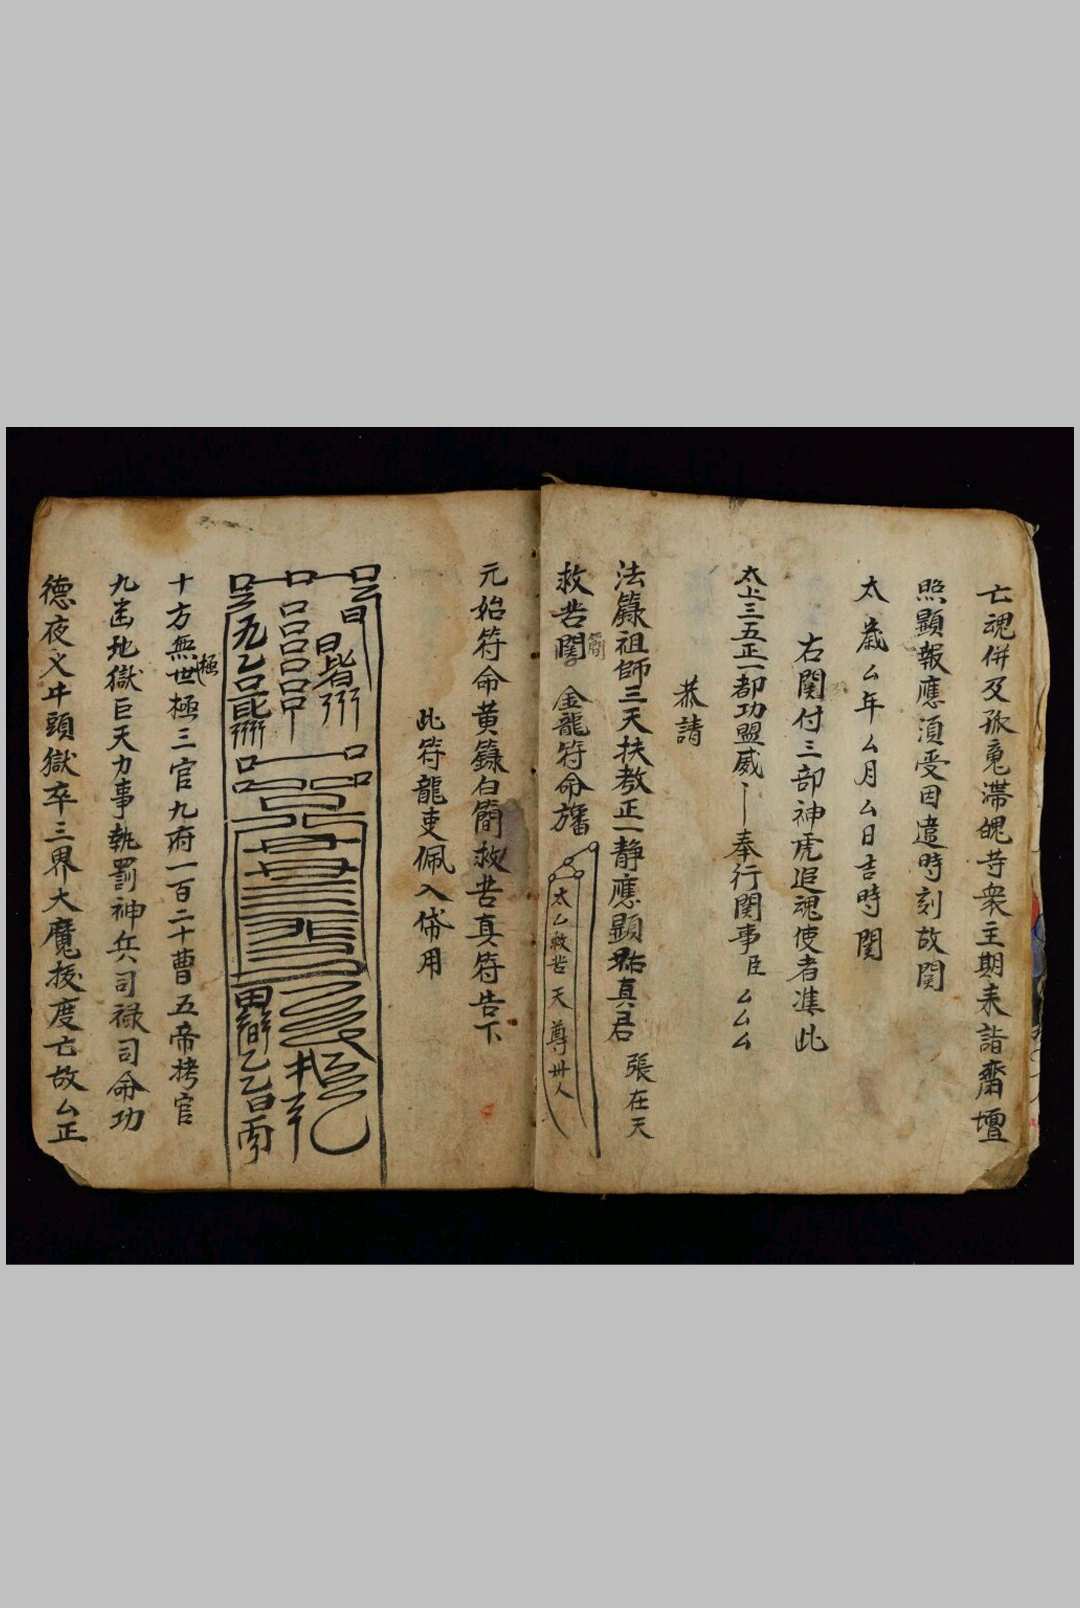 亡魂併及孤魂滯魄等衆主期來詣齋壇
照顯報應須受因遣時刻故関
太歲厶年厶月厶日吉時関
右関付三部神虎追魂使者准此
太上三五正一都功盟威奉行関事臣厶厶厶
恭請
法籙祖師三天扶教正一靜應顯佑真君 張在天
救苦関簡 金龍符命旛
太乙救苦天尊卅人
元始符命黃籙白簡救苦真符告下
此符龍吏佩入帒用
十方無世極極三官九府一百二十曹五帝拷官
九幽地獄巨天力事執罰神兵司祿司命功
德夜叉牛頭獄卒三界大魔拔度亡故厶正